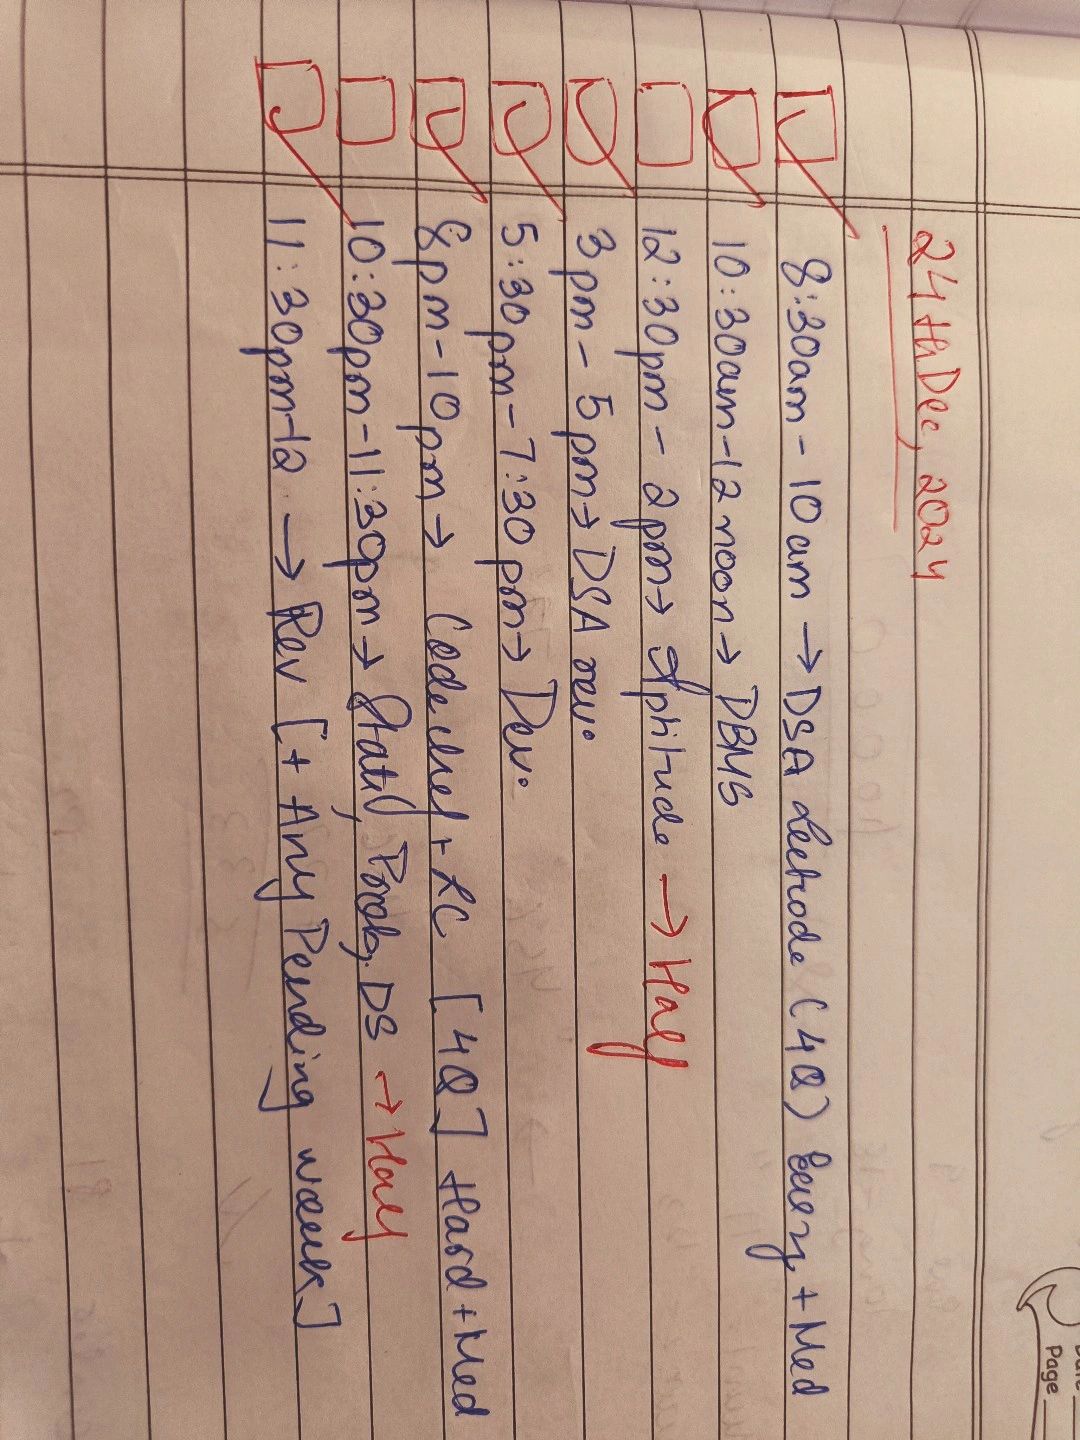 Page
24th Dec, 2024
8:30am - 10am → DSA Leetcode (4Q) Easy + Med
10:30am-12noon→ DBMS
12:30pm - 2pm→ Aptitude → Half
3pm - 5pm→ DSA rev.
5:30pm-7:30pm→ Dev.
8pm-10pm→ Codechef + LC [4Q] Hard + Med
10:30pm-11:30pm→ Stats, Prob, DS → Half
11:30pm-12 → Rev [+ Any Pending work]